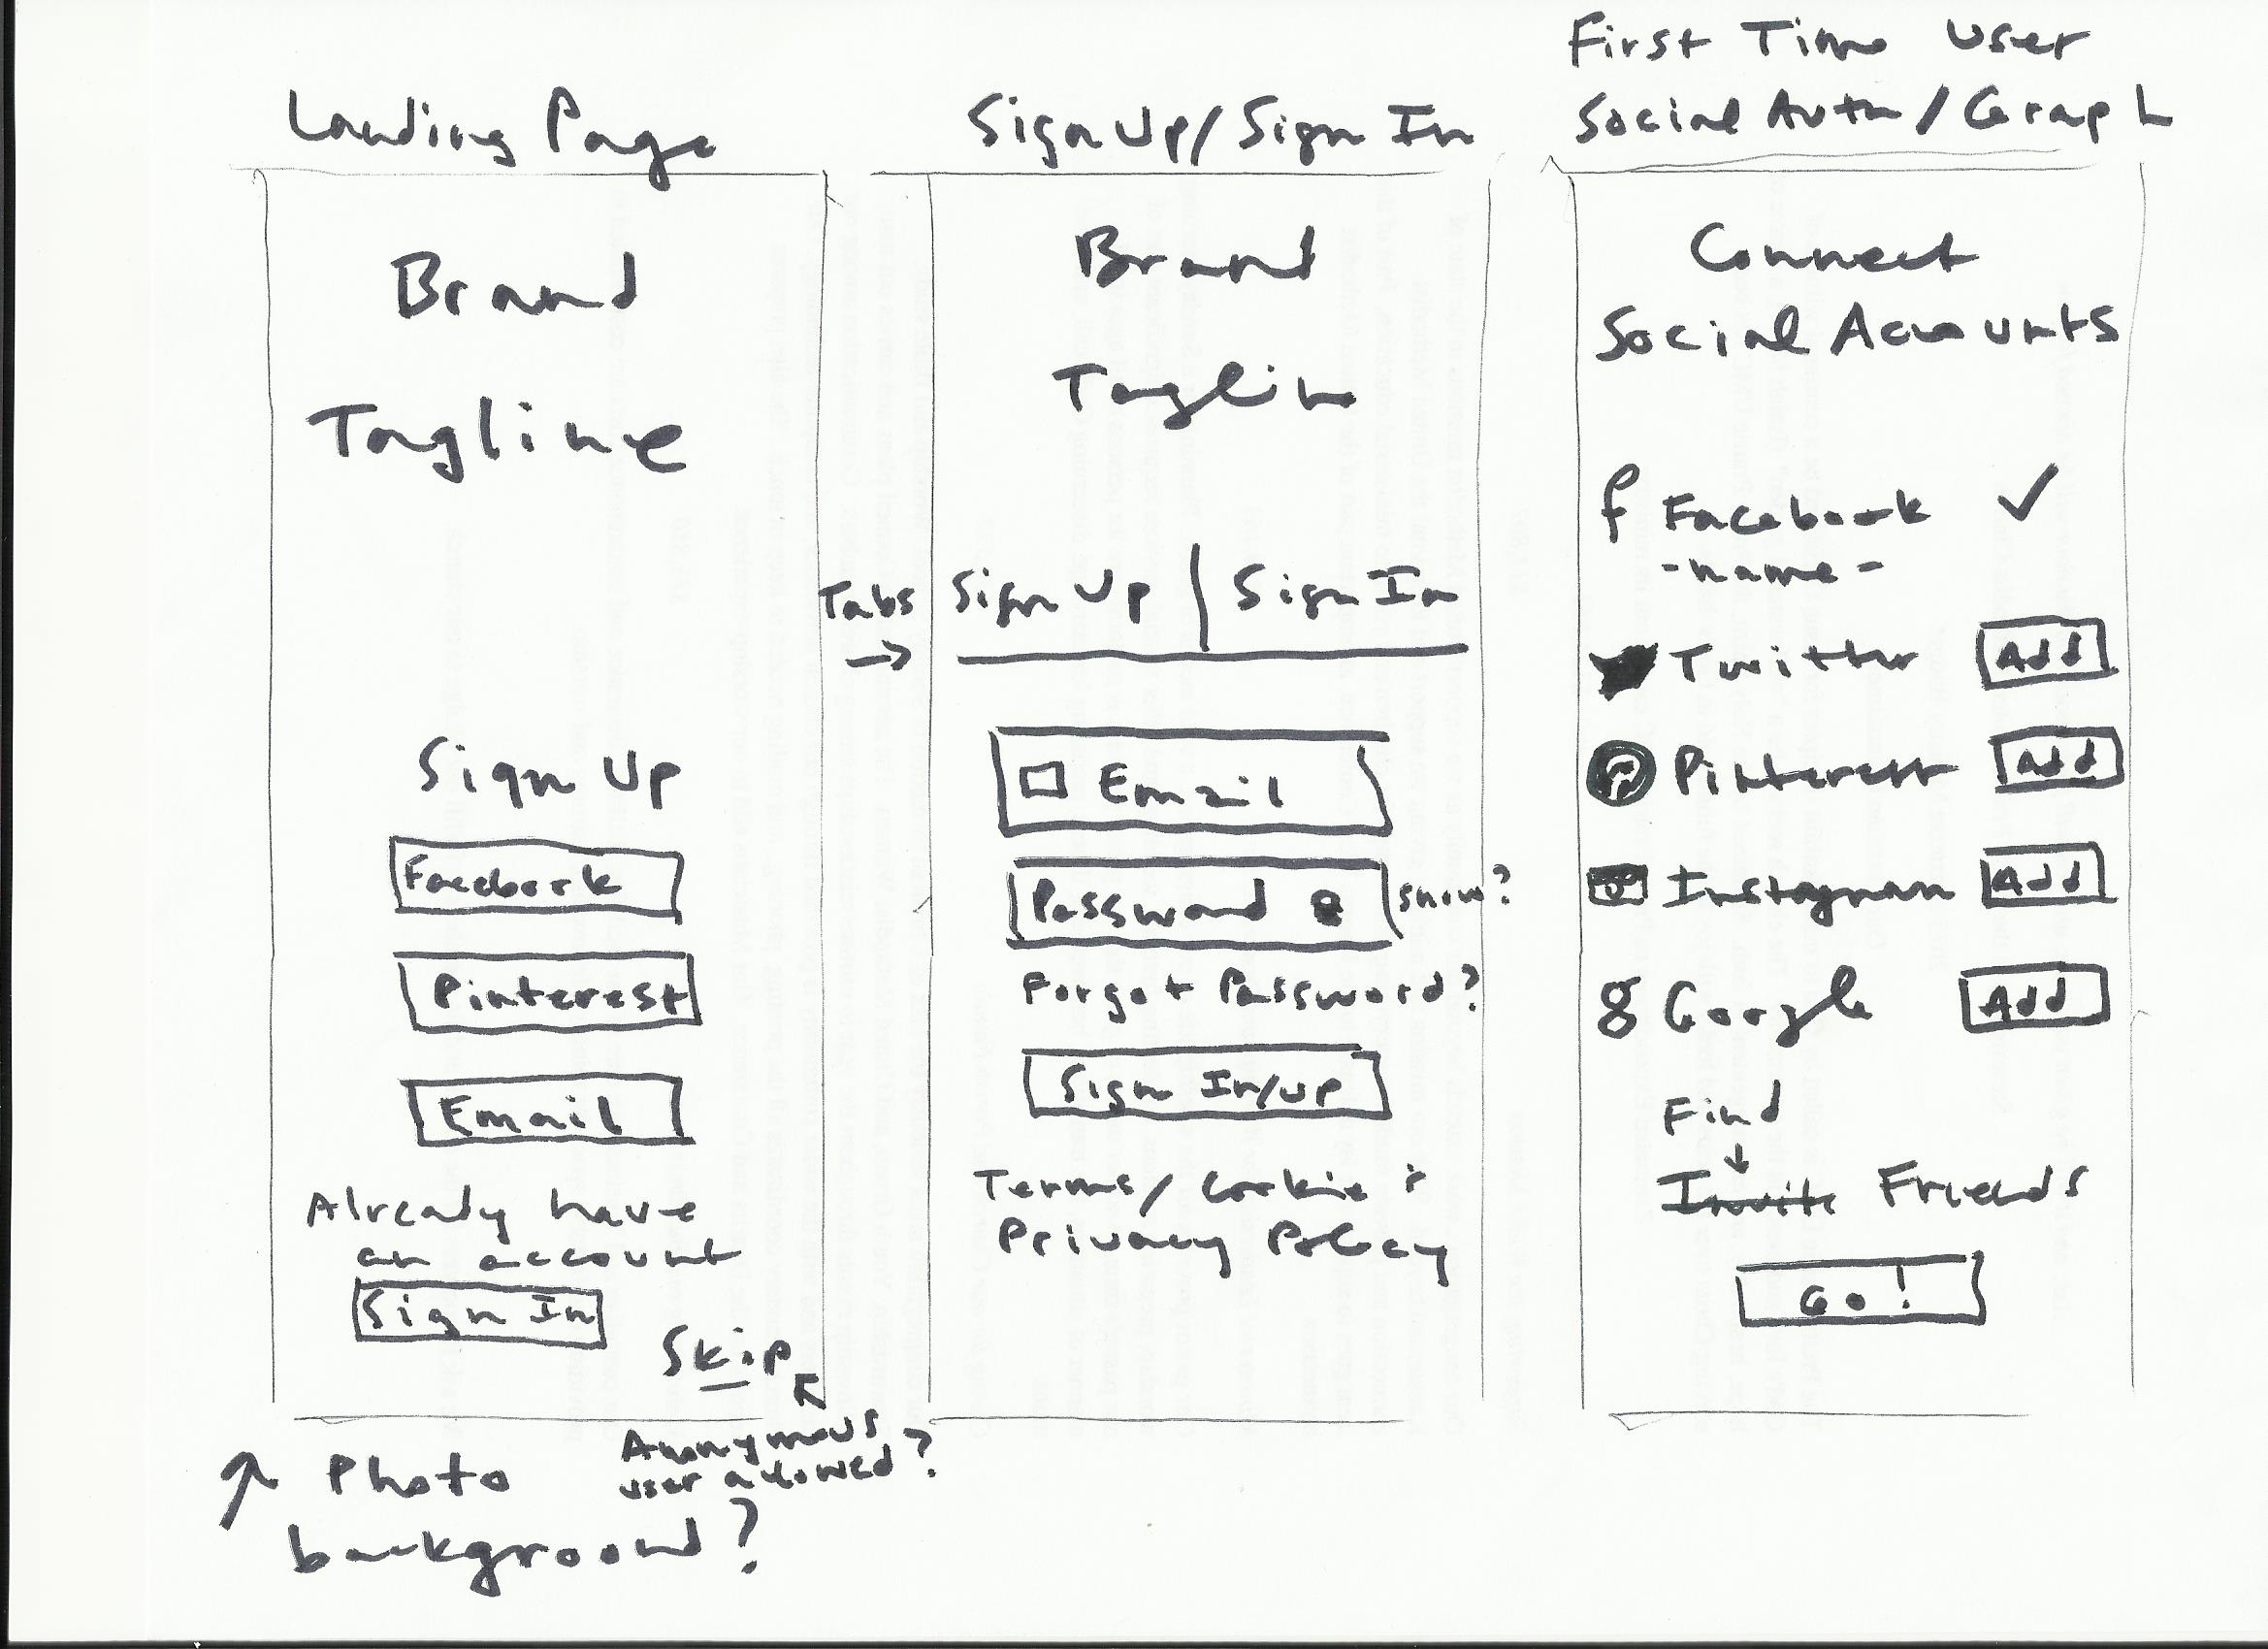 Landing Page
Brand
Tagline
Sign Up
Facebook
Pinterest
Email
Already have
an account
Sign In
Skip
Anonymous
user allowed?
↑ Photo
background?
Sign Up/Sign In
Brand
Taglin
Tabs
→
Sign Up | Sign In
Email
Password
show?
Forgot Password?
Sign In/up
Terms/Cookie +
Privacy Policy
First Time User
Social Auth/Graph
Connect
Social Accounts
f Facebook ✓
-name-
Twitter Add
Pinterest Add
Instagram Add
g Google Add
Find
↓
Invite Friends
Go!